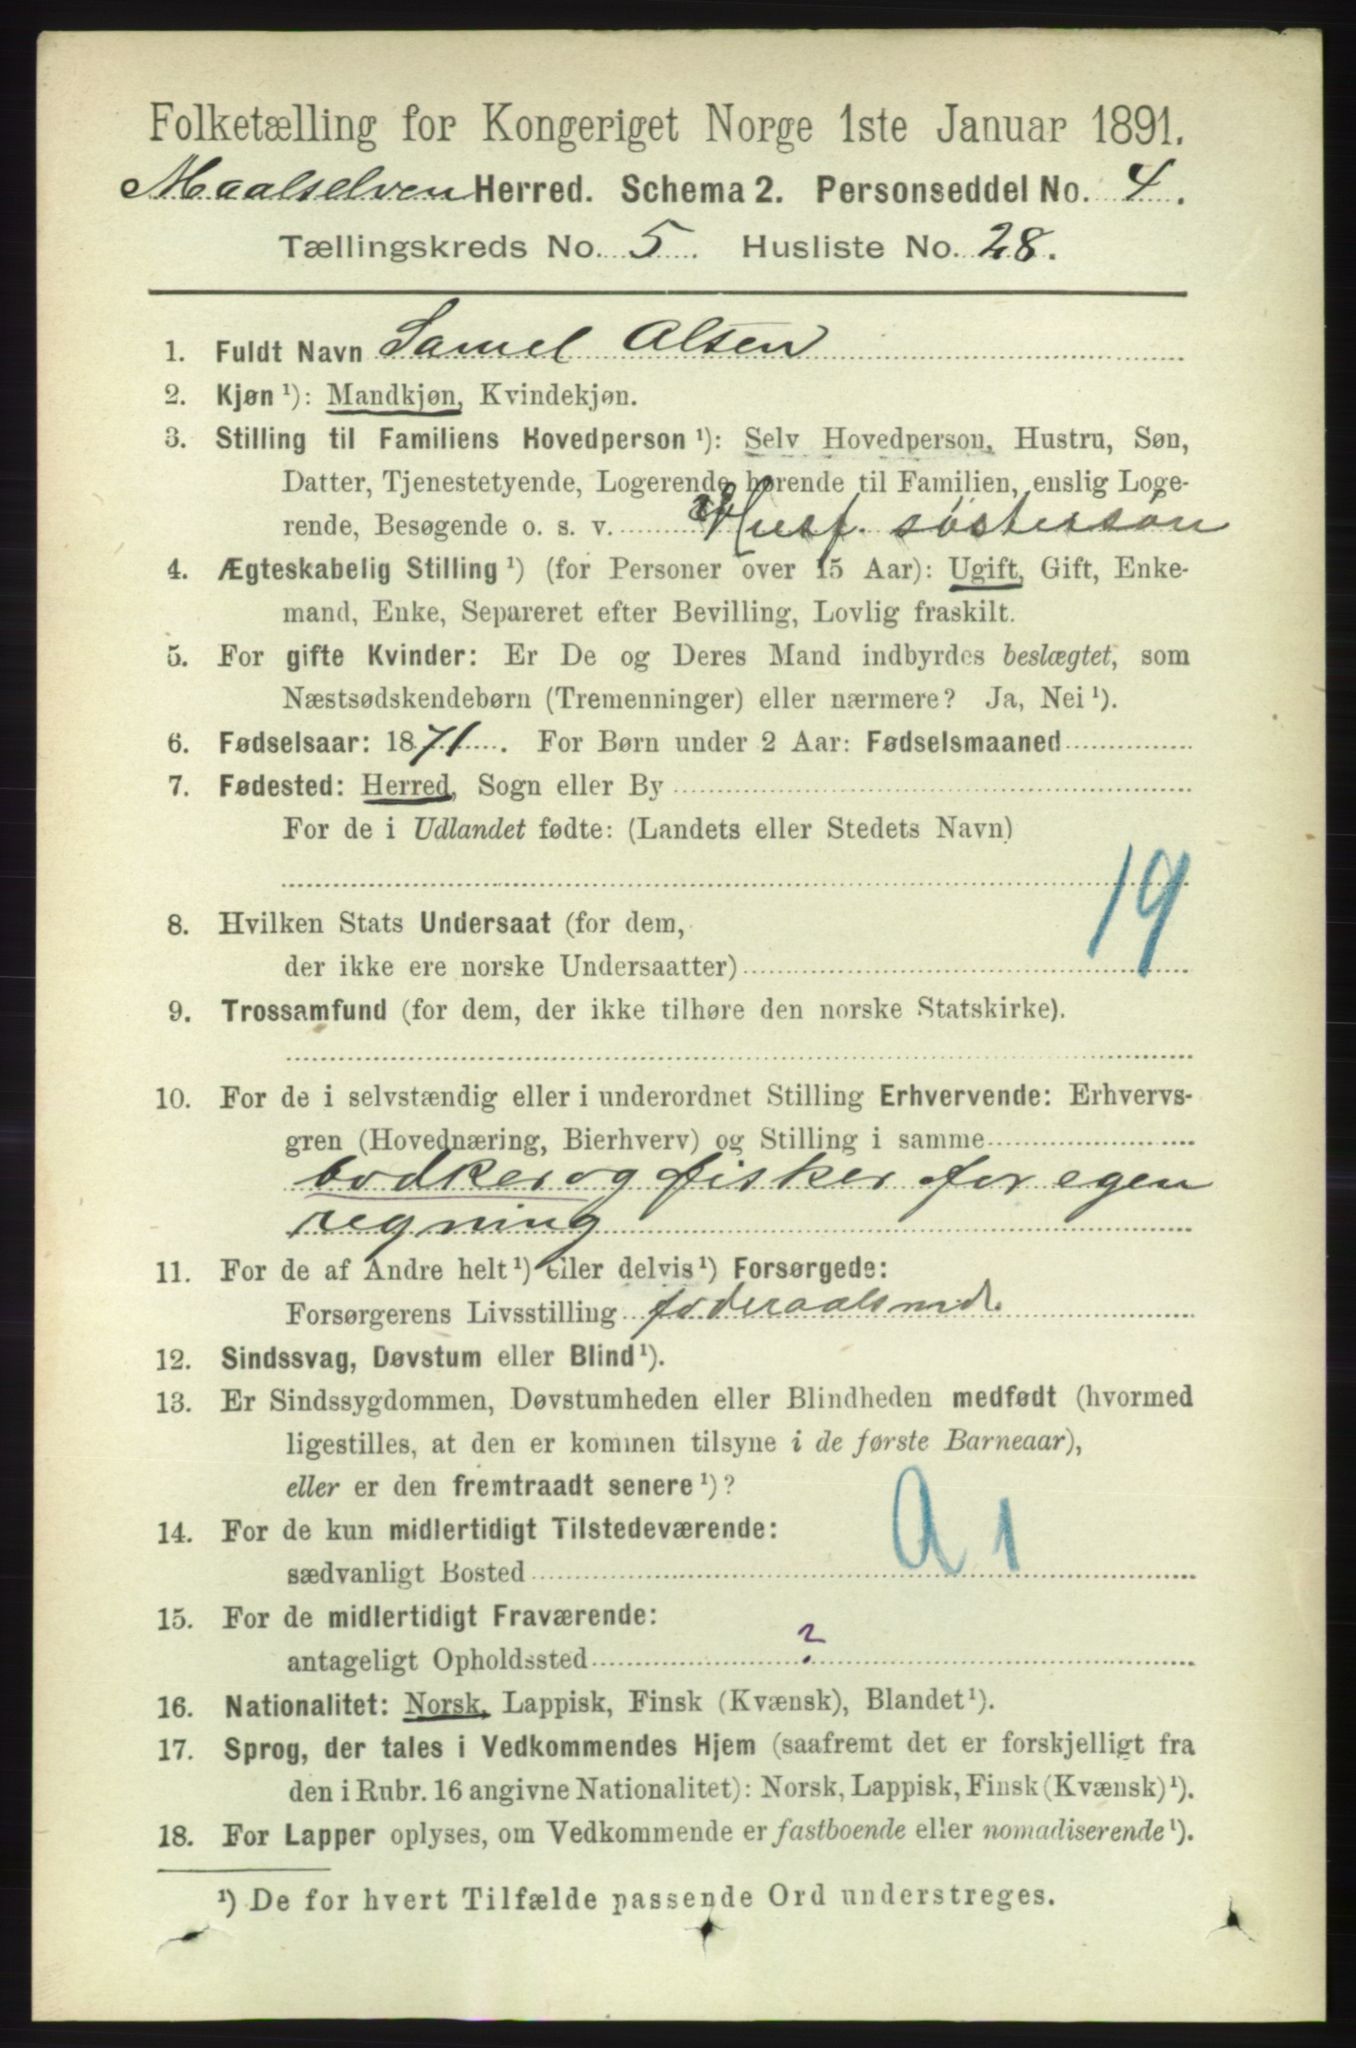 Folketælling for Kongeriget Norge 1ste Januar 1891.
Maalselven Herred. Schema 2. Personseddel No. 4.
Tællingskreds No. 5. Husliste No. 28.
1. Fuldt Navn Samel Olsen
2. Kjøn ¹): Mandkjøn, Kvindekjøn.
3. Stilling til Familiens Hovedperson ¹): Selv Hovedperson, Hustru, Søn,
Datter, Tjenestetyende, Logerende hørende til Familien, enslig Loge-
rende, Besøgende o. s. v. Husf. søstersøn
4. Ægteskabelig Stilling ¹) (for Personer over 15 Aar): Ugift, Gift, Enke-
mand, Enke, Separeret efter Bevilling, Lovlig fraskilt.
5. For gifte Kvinder: Er De og Deres Mand indbyrdes beslægtet, som
Næstsødskendebørn (Tremenninger) eller nærmere? Ja, Nei ¹).
6. Fødselsaar: 1871. For Børn under 2 Aar: Fødselsmaaned
7. Fødested: Herred, Sogn eller By
For de i Udlandet fødte: (Landets eller Stedets Navn)
19
8. Hvilken Stats Undersaat (for dem,
der ikke ere norske Undersaatter)
9. Trossamfund (for dem, der ikke tilhøre den norske Statskirke).
10. For de i selvstændig eller i underordnet Stilling Erhvervende: Erhvervs-
gren (Hovednæring, Bierhverv) og Stilling i samme
bødker og fisker for egen
regning
11. For de af Andre helt ¹) eller delvis ¹) Forsørgede:
Forsørgerens Livsstilling føderaadsmd.
12. Sindssvag, Døvstum eller Blind ¹).
13. Er Sindssygdommen, Døvstumheden eller Blindheden medfødt (hvormed
ligestilles, at den er kommen tilsyne i de første Barneaar),
eller er den fremtraadt senere ¹)?
a 1
14. For de kun midlertidigt Tilstedeværende:
sædvanligt Bosted
15. For de midlertidigt Fraværende:
antageligt Opholdssted ?
16. Nationalitet: Norsk, Lappisk, Finsk (Kvænsk), Blandet ¹).
17. Sprog, der tales i Vedkommendes Hjem (saafremt det er forskjelligt fra
den i Rubr. 16 angivne Nationalitet): Norsk, Lappisk, Finsk (Kvænsk) ¹).
18. For Lapper oplyses, om Vedkommende er fastboende eller nomadiserende ¹).
¹) De for hvert Tilfælde passende Ord understreges.